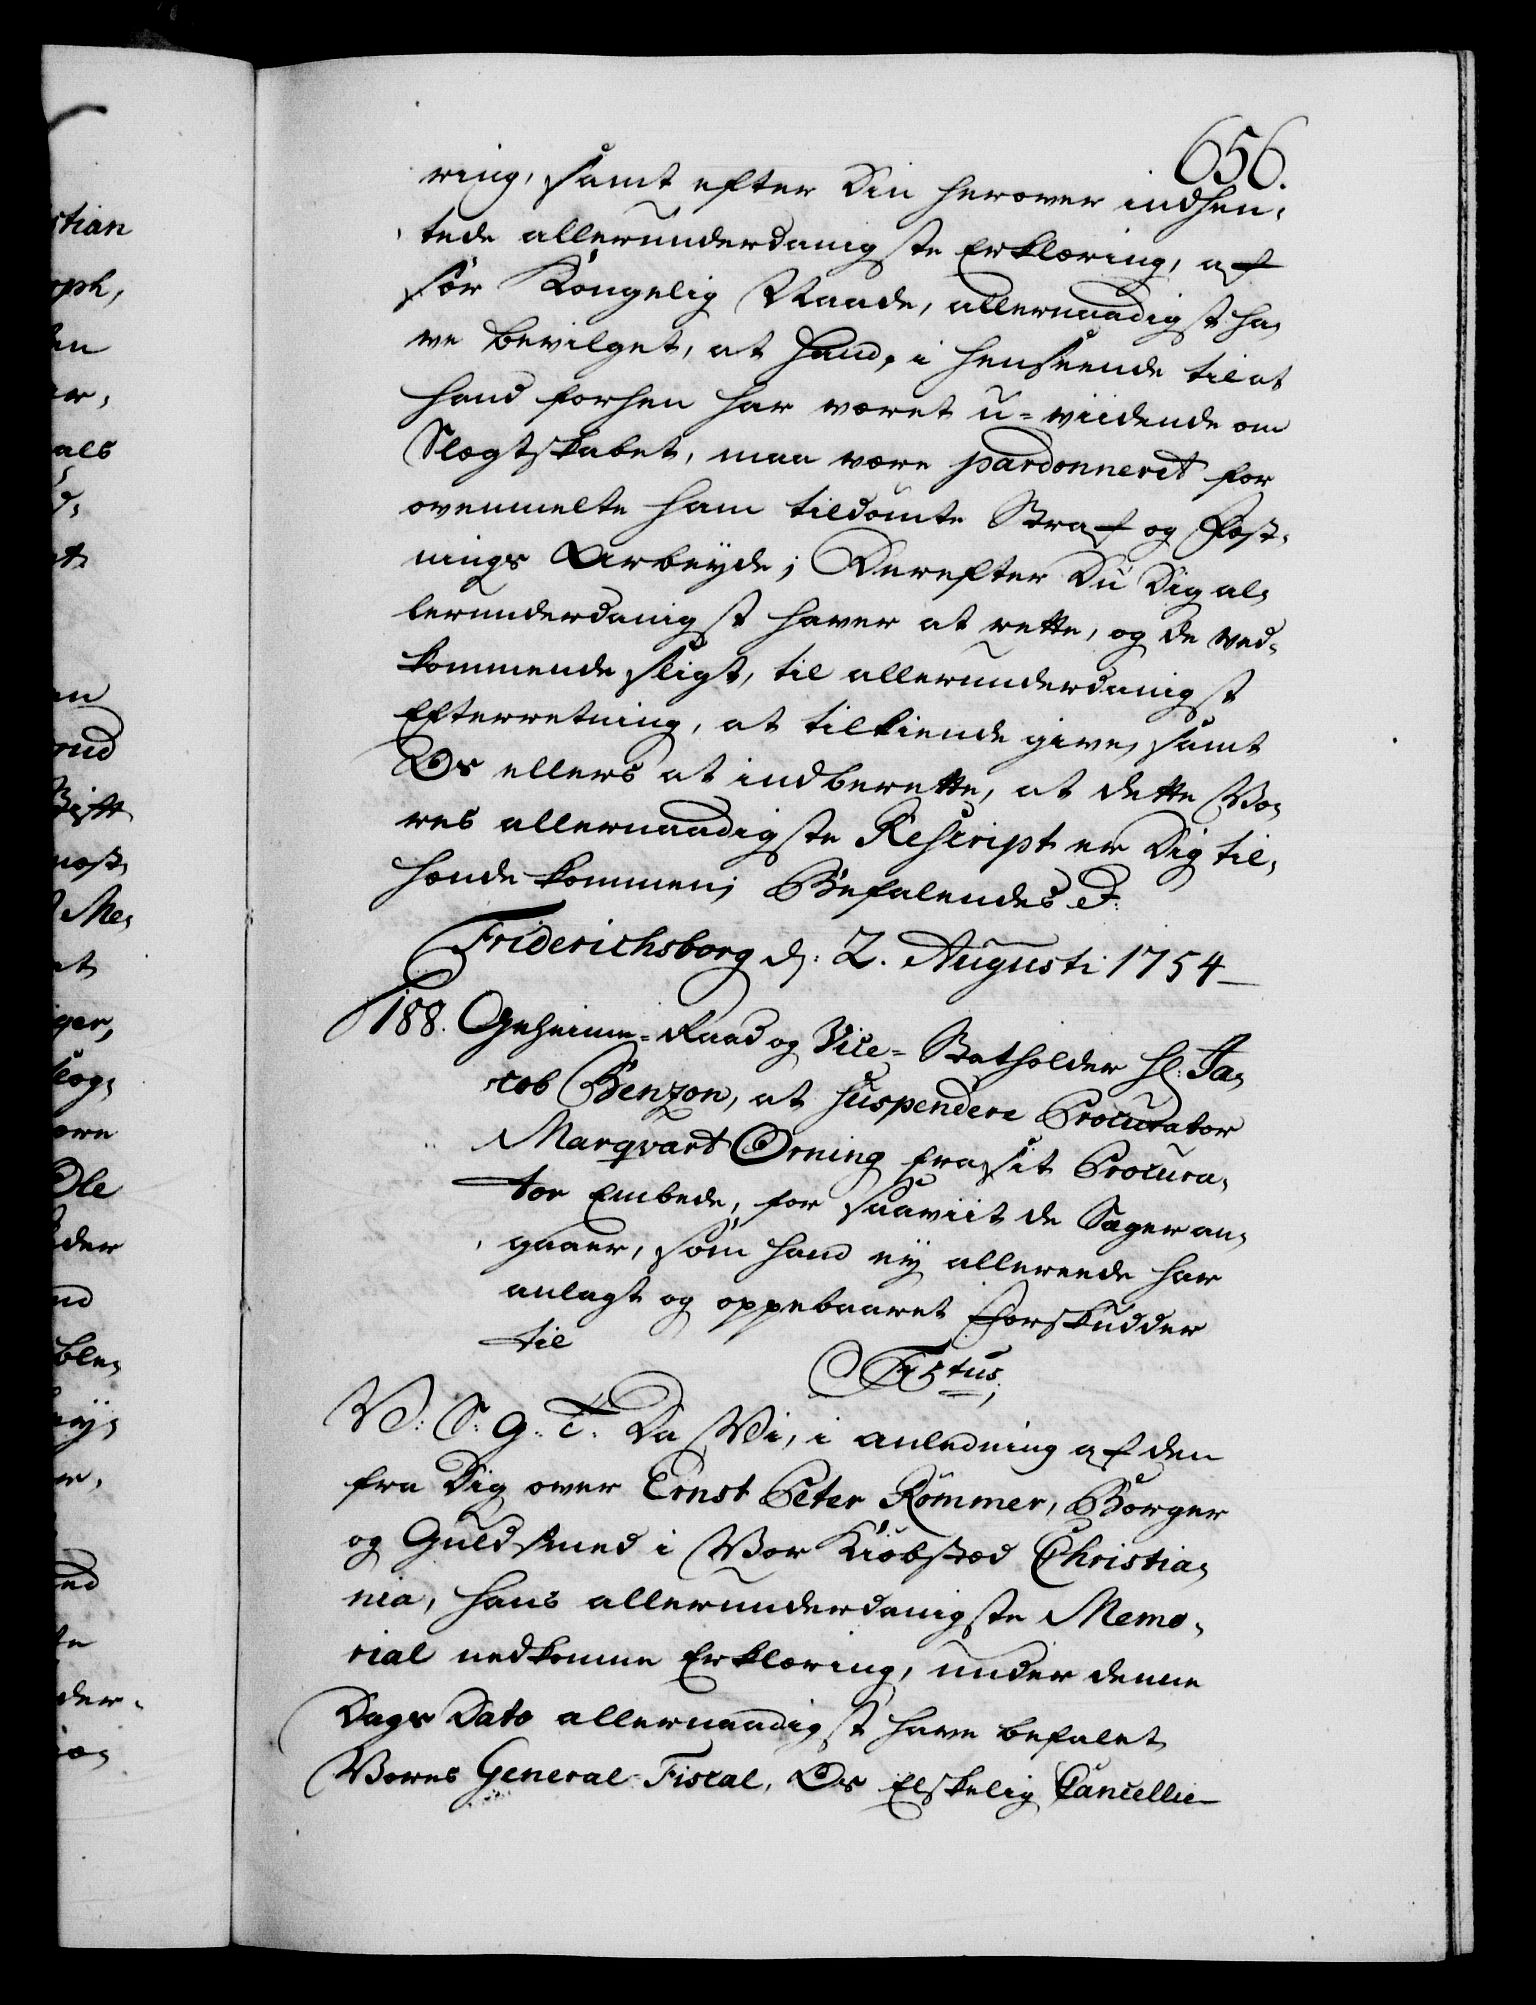 656.
ring, samt efter Din herover indhen-
tede allerunderdanigste Erklæring, af
sær Kongelig Naade, allernaadigst ha-
ve bevilget, at Hand, i henseende til at
hand forhen har været u-viidende om
Slægtskabet, maa være pardonneret for
ovenmelte ham tildømte Straf og Fæst-
nings Arbeyde; Derefter Du Dig al-
lerunderdanigst haver at rette, og de ved-
kommende sligt, til allerunderdanigst
Efterretning, at tilkiende give, samt
Os ellers at indberette, at dette Vo-
res allernaadigste Rescript er Dig til-
hænde kommen; Befalendes &:
Friderichsborg d: 2. Augusti 1754
188. Geheime-Raad og Vice-Statholder Hr: Ja-
cob Benzon, at suspendere Procurator
Marqvart Orning fra sit Procura-
tor Embede, for saaviit de Sager an-
gaaer, som hand ey allereede har
anlagt og oppebaaret Forskudder
til
V: S: G: T: Da Vi, i anledning af den
fra Dig over Ernst Peter Rømmer, Borger
og Guldsmed i Vor Kiøbstæd Christia-
nia, hans allerunderdanigste Memo-
rial nedkomne Erklæring, under denne
Dags Dato allernaadigst have befalet
Vores General-Fiscal, Os Elskelig Cancellie
stian
oph,
en
er,
als
nd
Me-
ger,
Ole
der
nd
ble-
der-